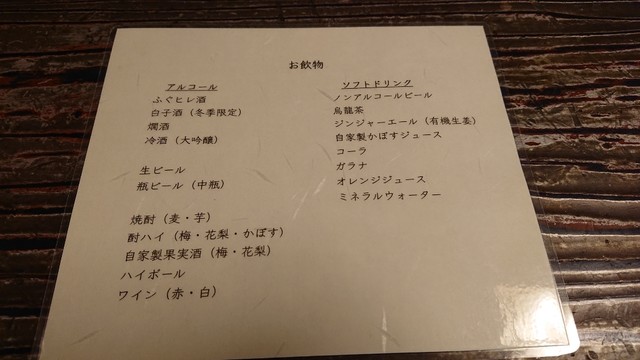 お飲物
アルコール
ふぐヒレ酒
白子酒（冬季限定）
燗酒
冷酒（大吟醸）
生ビール
瓶ビール（中瓶）
焼酎（麦・芋）
酎ハイ（梅・花梨・かぼす）
自家製果実酒（梅・花梨）
ハイボール
ワイン（赤・白）
ソフトドリンク
ノンアルコールビール
烏龍茶
ジンジャーエール（有機生姜）
自家製かぼすジュース
コーラ
ガラナ
オレンジジュース
ミネラルウォーター